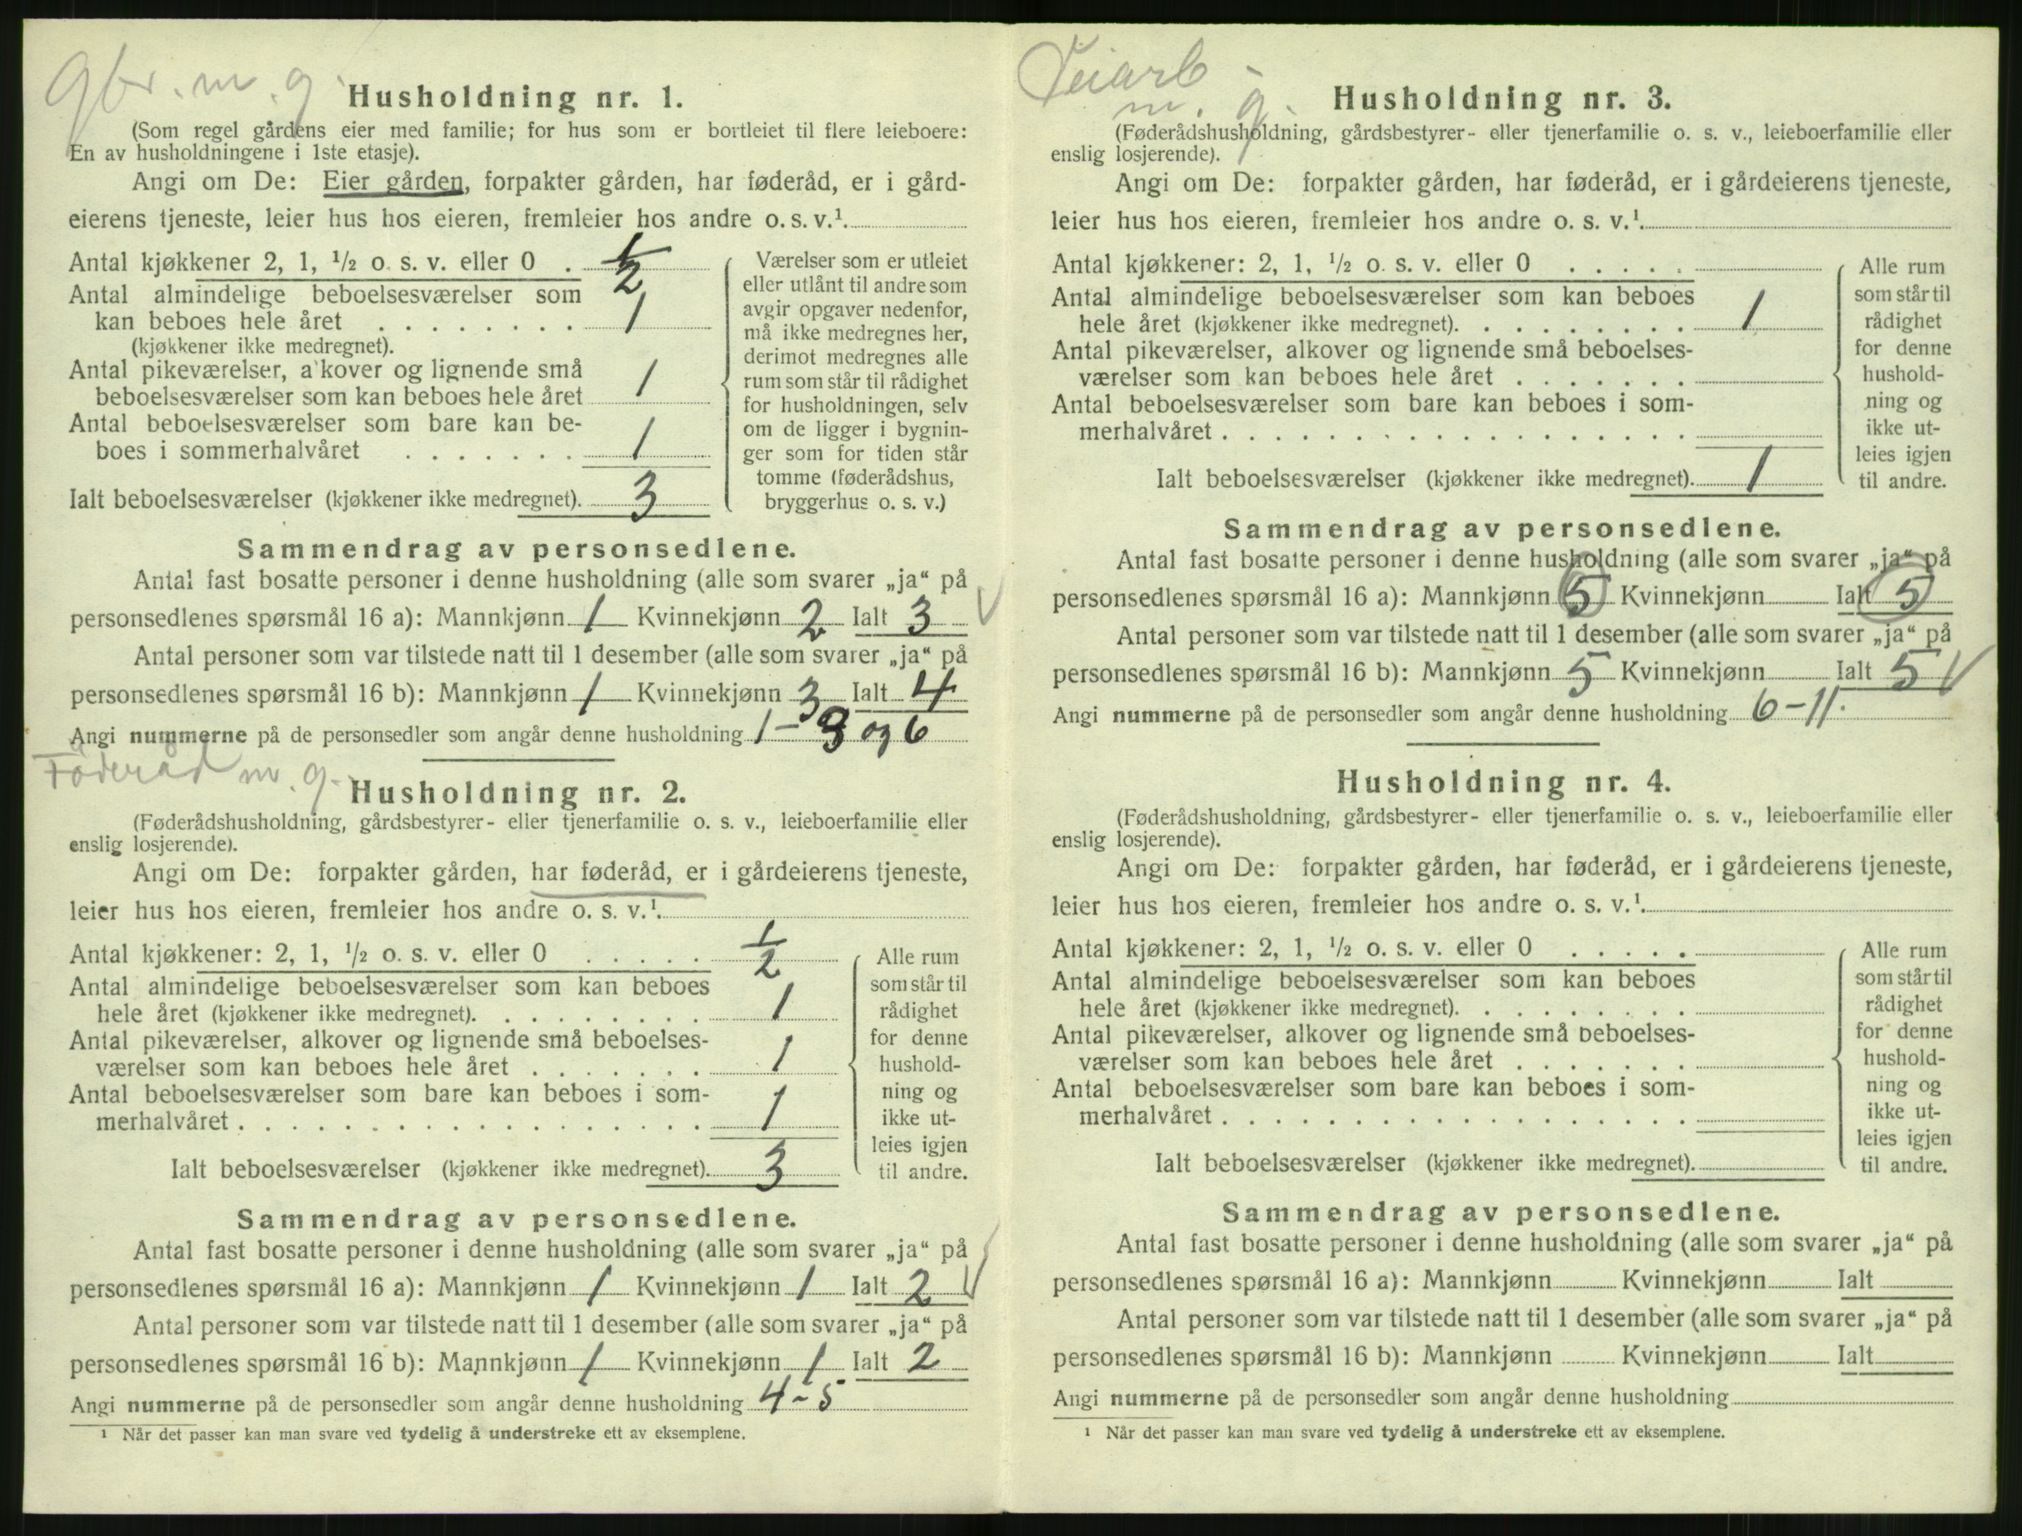 gbr. m. g.
Husholdning nr. 1.
(Som regel gårdens eier med familie; for hus som er bortleiet til flere leieboere:
En av husholdningene i 1ste etasje).
Angi om De: Eier gården, forpakter gården, har føderåd, er i gård-
eierens tjeneste, leier hus hos eieren, fremleier hos andre o. s. v.¹
Antal kjøkkener 2, 1, ½ o. s. v. eller 0 . ½
Antal almindelige beboelsesværelser som
kan beboes hele året . . . . . . . . 1
(kjøkkener ikke medregnet).
Antal pikeværelser, alkover og lignende små
beboelsesværelser som kan beboes hele året 1
Antal beboelsesværelser som bare kan be-
boes i sommerhalvåret . . . . . . . 1
Ialt beboelsesværelser (kjøkkener ikke medregnet). 3
Værelser som er utleiet
eller utlånt til andre som
avgir opgaver nedenfor,
må ikke medregnes her,
derimot medregnes alle
rum som står til rådighet
for husholdningen, selv
om de ligger i bygnin-
ger som for tiden står
tomme (føderådshus,
bryggerhus o. s. v.)
Sammendrag av personsedlene.
Antal fast bosatte personer i denne husholdning (alle som svarer „ja“ på
personsedlenes spørsmål 16 a): Mannkjønn 1 Kvinnekjønn 2 Ialt 3
Antal personer som var tilstede natt til 1 desember (alle som svarer „ja“ på
personsedlenes spørsmål 16 b): Mannkjønn 1 Kvinnekjønn 3 Ialt 4
Angi nummerne på de personsedler som angår denne husholdning 1-3 og 6
Føderåd m. g.
Husholdning nr. 2.
(Føderådshusholdning, gårdsbestyrer- eller tjenerfamilie o. s. v., leieboerfamilie eller
enslig losjerende).
Angi om De: forpakter gården, har føderåd, er i gårdeierens tjeneste,
leier hus hos eieren, fremleier hos andre o. s. v.¹
Antal kjøkkener: 2, 1, ½ o. s. v. eller 0 . . . . . ½
Antal almindelige beboelsesværelser som kan beboes
hele året (kjøkkener ikke medregnet). . . . . . . . . 1
Antal pikeværelser, alkover og lignende små beboelses-
værelser som kan beboes hele året . . . . . . . 1
Antal beboelsesværelser som bare kan beboes i som-
merhalvåret . . . . . . . . . . . . . . . . . . 1
Ialt beboelsesværelser (kjøkkener ikke medregnet). 3
Alle rum
som står til
rådighet
for denne
hushold-
ning og
ikke ut-
leies igjen
til andre.
Sammendrag av personsedlene.
Antal fast bosatte personer i denne husholdning (alle som svarer „ja“ på
personsedlenes spørsmål 16 a): Mannkjønn 1 Kvinnekjønn 1 Ialt 2
Antal personer som var tilstede natt til 1 desember (alle som svarer „ja“ på
personsedlenes spørsmål 16 b): Mannkjønn 1 Kvinnekjønn 1 Ialt 2
Angi nummerne på de personsedler som angår denne husholdning 4-5
¹ Når det passer kan man svare ved tydelig å understreke ett av eksemplene.
Veiarb.
m. g.
Husholdning nr. 3.
(Føderådshusholdning, gårdsbestyrer- eller tjenerfamilie o. s. v., leieboerfamilie eller
enslig losjerende).
Angi om De: forpakter gården, har føderåd, er i gårdeierens tjeneste,
leier hus hos eieren, fremleier hos andre o. s. v.¹
Antal kjøkkener: 2, 1, ½ o. s. v. eller 0 . . . . .
Antal almindelige beboelsesværelser som kan beboes
hele året (kjøkkener ikke medregnet). . . . . . . . . 1
Antal pikeværelser, alkover og lignende små beboelses-
værelser som kan beboes hele året . . . . . . .
Antal beboelsesværelser som bare kan beboes i som-
merhalvåret . . . . . . . . . . . . . . . . . .
Ialt beboelsesværelser (kjøkkener ikke medregnet). 1
Alle rum
som står til
rådighet
for denne
hushold-
ning og
ikke ut-
leies igjen
til andre.
Sammendrag av personsedlene.
Antal fast bosatte personer i denne husholdning (alle som svarer „ja“ på
personsedlenes spørsmål 16 a): Mannkjønn 5 Kvinnekjønn Ialt 5
Antal personer som var tilstede natt til 1 desember (alle som svarer „ja“ på
personsedlenes spørsmål 16 b): Mannkjønn 5 Kvinnekjønn Ialt 5
Angi nummerne på de personsedler som angår denne husholdning 6-11.
Husholdning nr. 4.
(Føderådshusholdning, gårdsbestyrer- eller tjenerfamilie o. s. v., leieboerfamilie eller
enslig losjerende).
Angi om De: forpakter gården, har føderåd, er i gårdeierens tjeneste,
leier hus hos eieren, fremleier hos andre o. s. v.¹
Antal kjøkkener: 2, 1, ½ o. s. v. eller 0 . . . . .
Antal almindelige beboelsesværelser som kan beboes
hele året (kjøkkener ikke medregnet). . . . . . . . .
Antal pikeværelser, alkover og lignende små beboelses-
værelser som kan beboes hele året . . . . . . .
Antal beboelsesværelser som bare kan beboes i som-
merhalvåret . . . . . . . . . . . . . . . . . .
Ialt beboelsesværelser (kjøkkener ikke medregnet).
Alle rum
som står til
rådighet
for denne
hushold-
ning og
ikke ut-
leies igjen
til andre.
Sammendrag av personsedlene.
Antal fast bosatte personer i denne husholdning (alle som svarer „ja“ på
personsedlenes spørsmål 16 a): Mannkjønn Kvinnekjønn Ialt
Antal personer som var tilstede natt til 1 desember (alle som svarer „ja“ på
personsedlenes spørsmål 16 b): Mannkjønn Kvinnekjønn Ialt
Angi nummerne på de personsedler som angår denne husholdning
¹ Når det passer kan man svare ved tydelig å understreke ett av eksemplene.